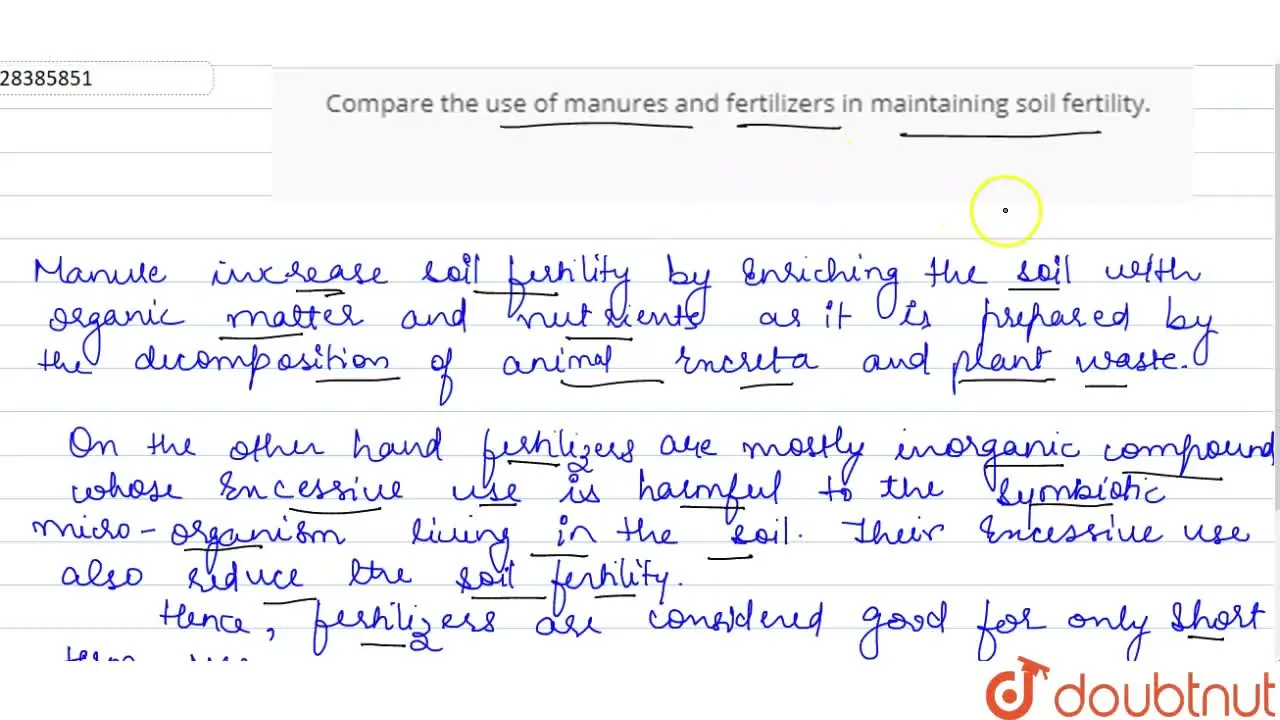 28385851
Compare the use of manures and fertilizers in maintaining soil fertility.
Manure increase soil fertility by enriching the soil with
organic matter and nutrients as it is prepared by
the decomposition of animal excreta and plant waste.
On the other hand fertilizers are mostly inorganic compound
whose excessive use is harmful to the symbiotic
micro-organism living in the soil. Their excessive use
also reduce the soil fertility.
Hence, fertilizers are considered good for only short
term use
doubtnut